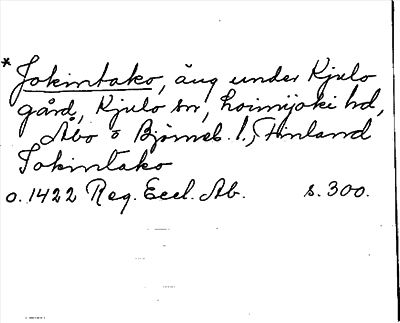 * Jokintako, äng under Kjulo
gård, Kjulo sn, Loimijoki hd,
Åbo o Björneb. l., Finland
Jokintako
o. 1422 Reg. Eccl. Ab. s. 300.